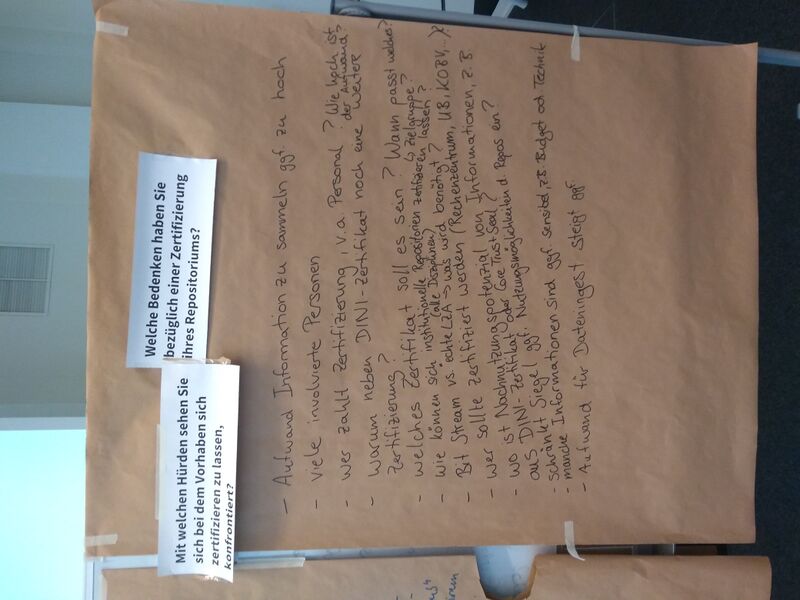 Welche Bedenken haben Sie
bezüglich einer Zertifizierung
ihres Repositoriums?
Mit welchen Hürden sehen Sie
sich bei dem Vorhaben sich
zertifizieren zu lassen,
konfrontiert?
- Aufwand Information zu sammeln ggf. zu hoch
- viele involvierte Personen
- wer zahlt Zertifizierung, v.a. Personal? Wie hoch ist
der Aufwand?
- Warum neben DINI-Zertifikat noch eine weitere
Zertifizierung?
- welches Zertifikat soll es sein? Wann passt welches?
↳ Zielgruppe?
- wie können sich institutionelle Repositorien zertifizieren lassen?
(alle Disziplinen)
- Bit Stream vs. echte LZA → was wird benötigt?
- wer sollte zertifiziert werden (Rechenzentrum, UB, KOBV, ...)?
- wo ist Nachnutzungspotenzial von Informationen, z.B.
aus DINI-Zertifikat oder Core Trust Seal?
- schränkt Siegel ggf. Nutzungsmöglichkeiten d. Repos ein?
- manche Informationen sind ggf. sensibel, z.B. Budget od. Technik
- Aufwand für Dateningest steigt ggf.